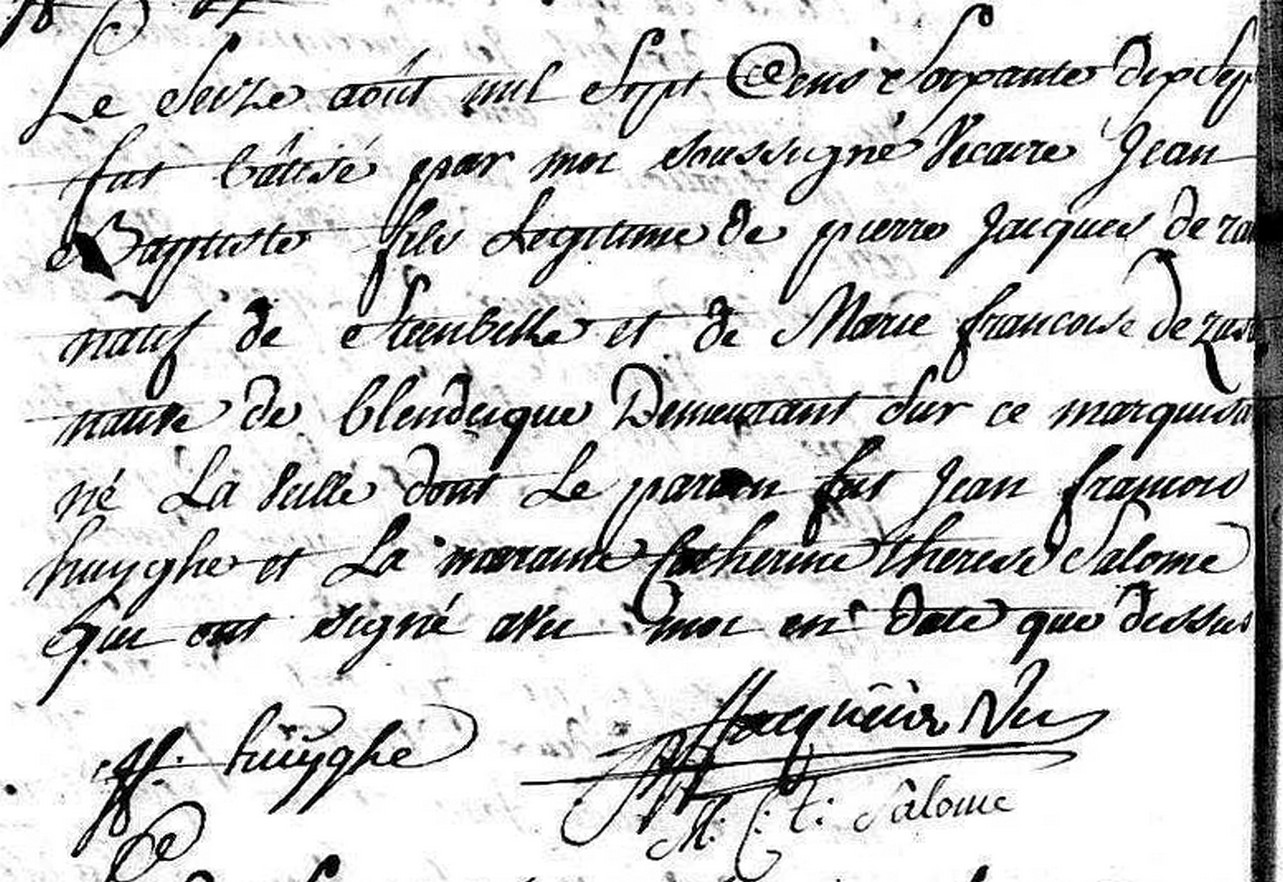 Le Seize août mil Sept Cens Soixante dix Sep
fut bâtisé par moi soussigné Vicaire Jean
Baptiste fils Legitime de pierre Jacques
natif de Steenbecke et de Marie francoise
native de blendecque Demeurant Sur ce marquisa
né La Veille dont Le parein fut Jean francois
huyghe et La maraine Catherine therese Salome
qui ont signé avec moi en date que dessus
J f. huÿghe
Vic
M: C: t: Salome